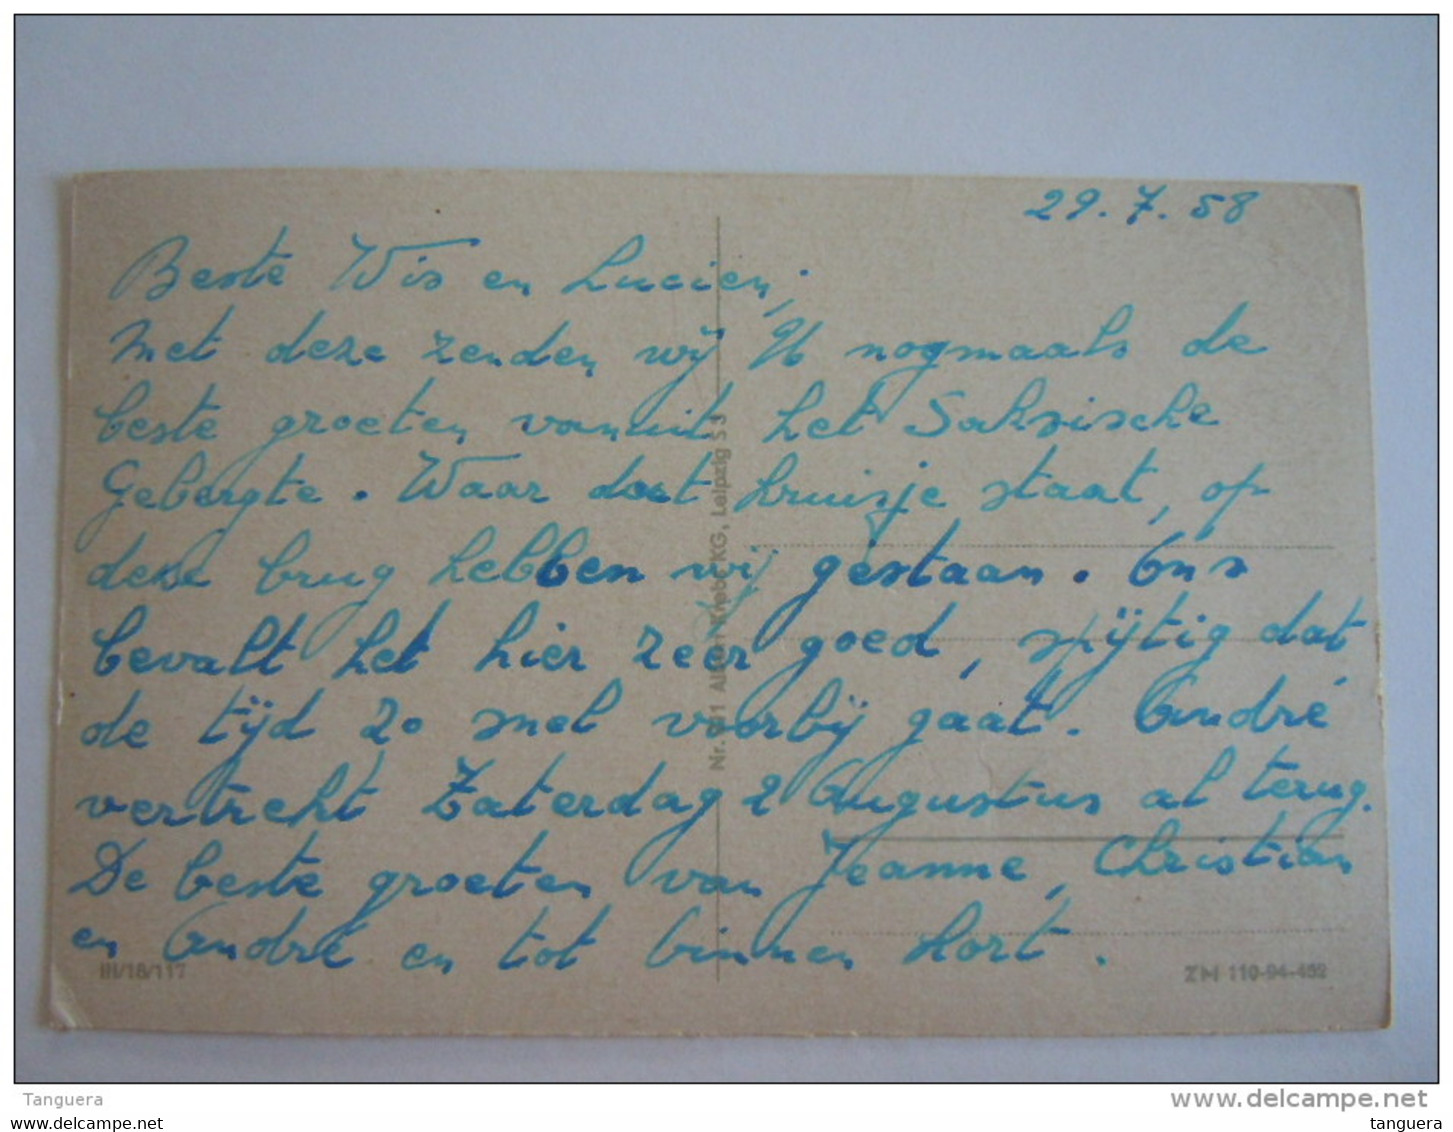 29.7.58
Beste Wis en Lucien,
Met deze zenden wij U nogmaals de
beste groeten vanuit het Saksische
Gebergte. Waar dat kruisje staat, op
deze brug hebben wij gestaan. Ons
bevalt het hier zeer goed, spijtig dat
de tijd zo snel voorbij gaat. André
vertrekt Zaterdag 2 Augustus al terug.
De beste groeten van Jeanne, Christian
en André en tot binnen kort.
III/18/117
ZM 110-94-462
KG, Leipzig S 3
Tanguera
www.delcampe.net
www.delcampe.net
tanguera